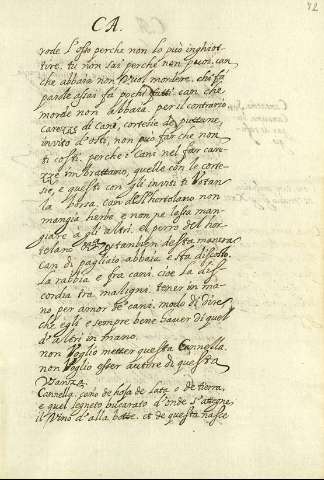 CA.
rode l'osso perche non lo può inghiot-
tire. tu non sai perche non puoi. can
che abbaia non vuol mordere. chi fà
parole assai fà pochi fatti. can che
morde non abbaia. per il contrario
carezze di cani, cortesie de puttane,
inviti d'osti, non può far che non
ti costi. perche i cani nel far carez-
ze imbrattano, quelle con le corte-
sie, e questi con gli inviti ti votan
la borsa. can dell'hortolano non
mangia herbe e non ne lassa man-
giare a gli altri. el perro del hor-
telano y tambien desta manera
can di pagliaio abbaia e sta discosto.
la rabbia e fra cani. cioe la dis-
cordia tra maligni. tener in ma-
no per amor de cani. modo di dire
che egli e sempre bene haver di quel
d'altri in mano.
non voglio metter questa Cannella.
non voglio esser autore di questa
usanza.
Cannella. caño de hoja de lata o de tierra,
e quel legneto bucarato d'onde s'attegne
il vino d'alla botte. et de questa nasce